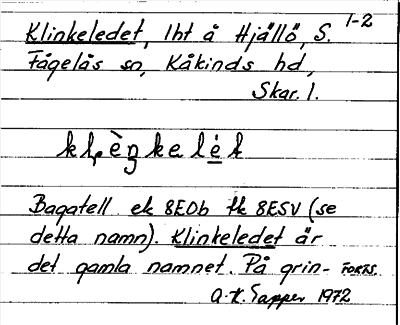 1-2
Klinkeledet, lht å Hjällö, S.
Fågelås sn, Kåkinds hd,
Skar. l.
Bagatell ek 8EDb tk 8ESV (se
detta namn). Klinkeledet är
det gamla namnet. På grin- FORTS.
1972